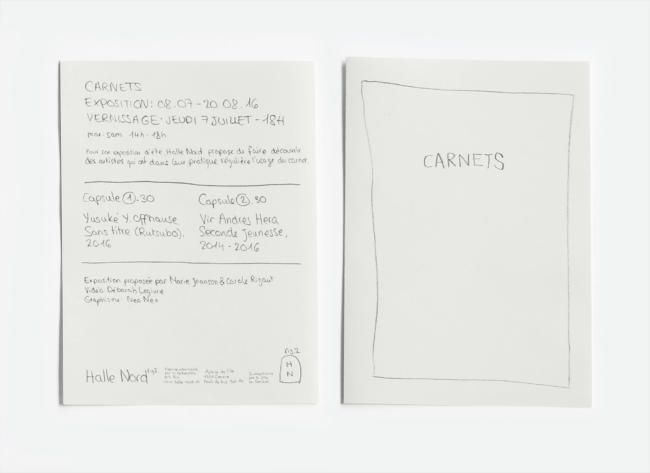 CARNETS
EXPOSITION: 08.07 - 20.08.16
VERNISSAGE: JEUDI 7 JUILLET - 18H
mar-sam 14h-18h
Pour son exposition d'été, Halle Nord propose de faire découvrir
des artistes qui ont dans leur pratique régulière l'usage du carnet.
Capsule 1.30
Yusuké Y. Offhause
Sans titre (Rutsubo),
2016
Capsule 2.30
Vir Andres Hera
Seconde Jeunesse,
2014-2016
Exposition proposée par Marie Jeanson & Carole Rigaut
Vidéo: Déborah Legivre
Graphisme: Neo Neo
Halle Nord
H
N
CARNETS